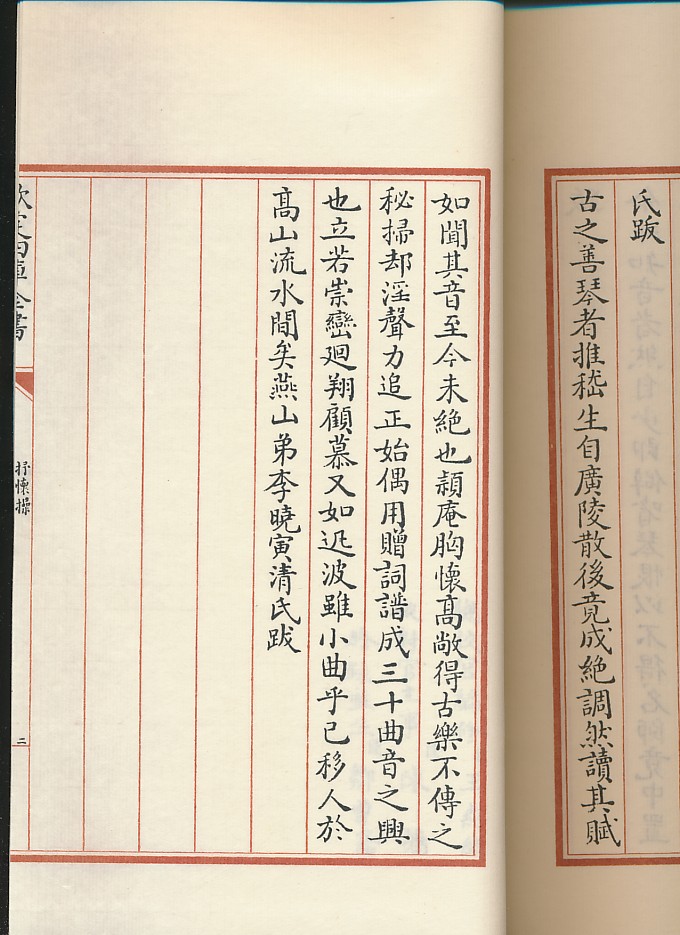 氏跋
古之善琴者推嵇生自廣陵散後竟成絶調然讀其賦
如聞其音至今未絶也頴庵胸懷高敞得古樂不傳之
秘掃却淫聲力追正始偶用贈詞譜成三十曲音之興
也立若崇巒廻翔顧慕又如逝波雖小曲乎已移人於
高山流水間矣燕山弟李曉寅清氏跋
欽定四庫全書
抒懷操
二